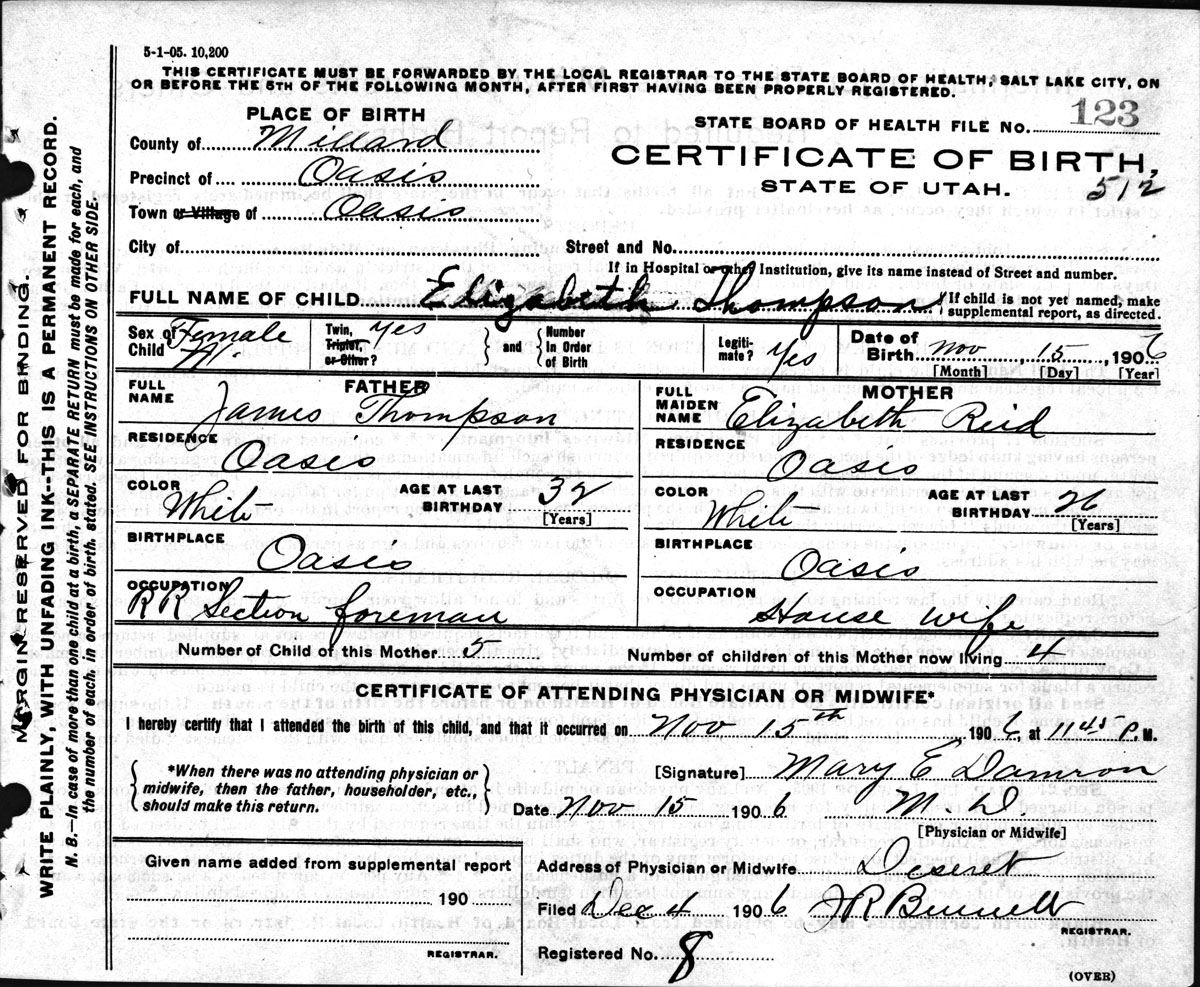 5-1-05. 10,200
THIS CERTIFICATE MUST BE FORWARDED BY THE LOCAL REGISTRAR TO THE STATE BOARD OF HEALTH, SALT LAKE CITY, ON
OR BEFORE THE 5TH OF THE FOLLOWING MONTH, AFTER FIRST HAVING BEEN PROPERLY REGISTERED.
PLACE OF BIRTH
County of Millard
Precinct of Oasis
Town or Village of Oasis
City of
STATE BOARD OF HEALTH FILE NO. 123
CERTIFICATE OF BIRTH,
STATE OF UTAH. 512
Street and No.
If in Hospital or other Institution, give its name instead of Street and number.
FULL NAME OF CHILD Elizabeth Thompson
If child is not yet named, make
supplemental report, as directed.
Sex of Child Female
Twin, Triplet, or Other? Yes
and
Number In Order of Birth
Legitimate? Yes
Date of Birth Nov 15, 1906
[Month] [Day] [Year]
FATHER
FULL NAME James Thompson
RESIDENCE Oasis
COLOR White
AGE AT LAST BIRTHDAY 32
[Years]
BIRTHPLACE Oasis
OCCUPATION RR Section foreman
MOTHER
FULL MAIDEN NAME Elizabeth Reid
RESIDENCE Oasis
COLOR White
AGE AT LAST BIRTHDAY 26
[Years]
BIRTHPLACE Oasis
OCCUPATION House wife
Number of Child of this Mother 5
Number of children of this Mother now living 4
CERTIFICATE OF ATTENDING PHYSICIAN OR MIDWIFE*
I hereby certify that I attended the birth of this child, and that it occurred on Nov 15th, 1906, at 1145 P. M.
*When there was no attending physician or
midwife, then the father, householder, etc.,
should make this return.
[Signature] Mary E Damron
Date Nov 15 1906 M. D.
[Physician or Midwife]
Given name added from supplemental report
190
REGISTRAR.
Address of Physician or Midwife Deseret
Filed Dec 4 1906 JR Bennett
REGISTRAR.
Registered No. 8
(OVER)
MARGIN RESERVED FOR BINDING.
WRITE PLAINLY, WITH UNFADING INK--THIS IS A PERMANENT RECORD.
N. B.—In case of more than one child at a birth, a SEPARATE RETURN must be made for each, and
the number of each, in order of birth, stated. SEE INSTRUCTIONS ON OTHER SIDE.